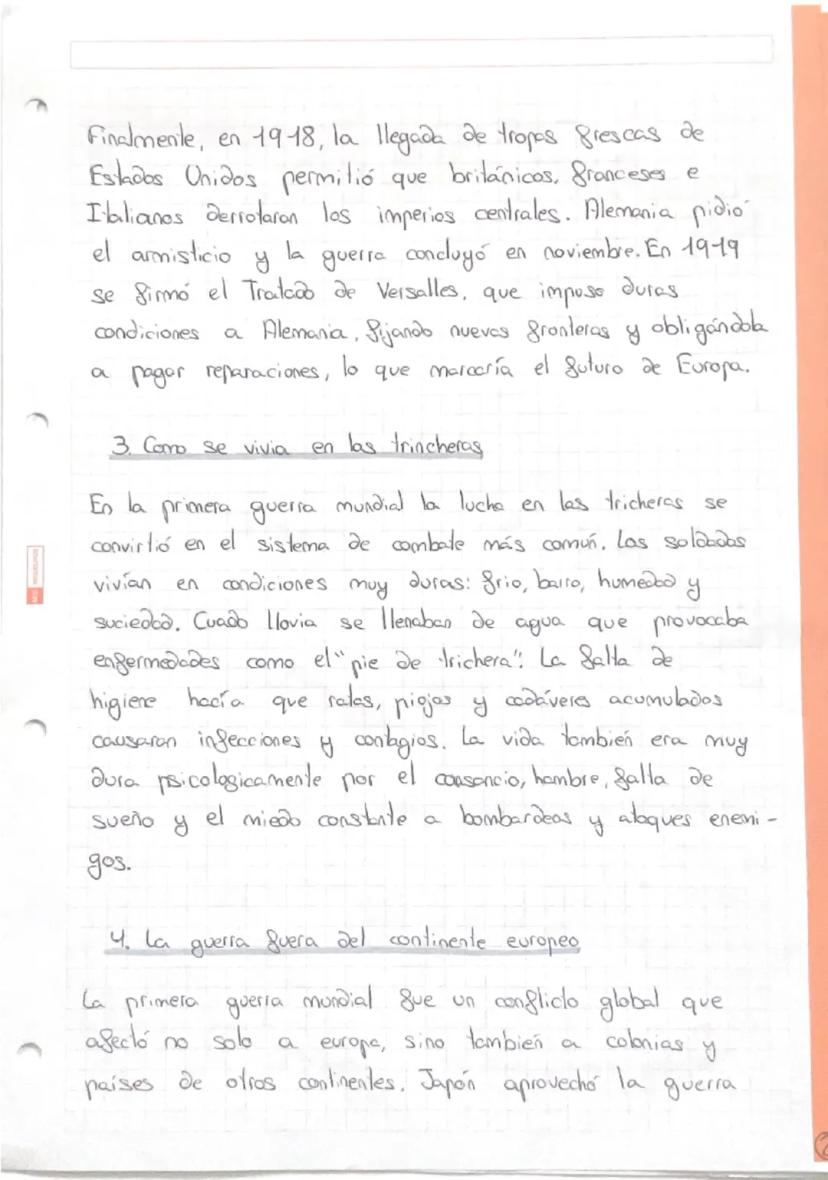 Finalmente, en 1918, la llegada de tropas frescas de
Estados Unidos permitió que británicos, franceses e
Italianos derrotaran los imperios centrales. Alemania pidió
el armisticio y la guerra concluyó en noviembre. En 1919
se firmó el Tratado de Versalles, que impuso duras
condiciones a Alemania, fijando nuevas fronteras y obligándola
a pagar reparaciones, lo que marcaría el futuro de Europa.
3. Como se vivia en las trincheras
En la primera guerra mundial la lucha en las tricheras se
convirtió en el sistema de combate más común. Los soldados
vivían en condiciones muy duras: frio, barro, humedad y
suciedad. Cuado llovia se llenaban de agua que provocaba
enfermedades como el "pie de trichera". La falta de
higiene hacía que ratas, piojos y cadáveres acumulados
causaran infecciones y contagios. La vida también era muy
dura psicologicamente por el cansancio, hambre, falta de
sueño y el miedo constante a bombardeos y ataques enemi-
gos.
4. La guerra fuera del continente europeo
La primera guerra mundial fue un conflicto global que
afectó no solo a europa, sino también a colonias y
países de otros continentes. Japón aprovechó la guerra